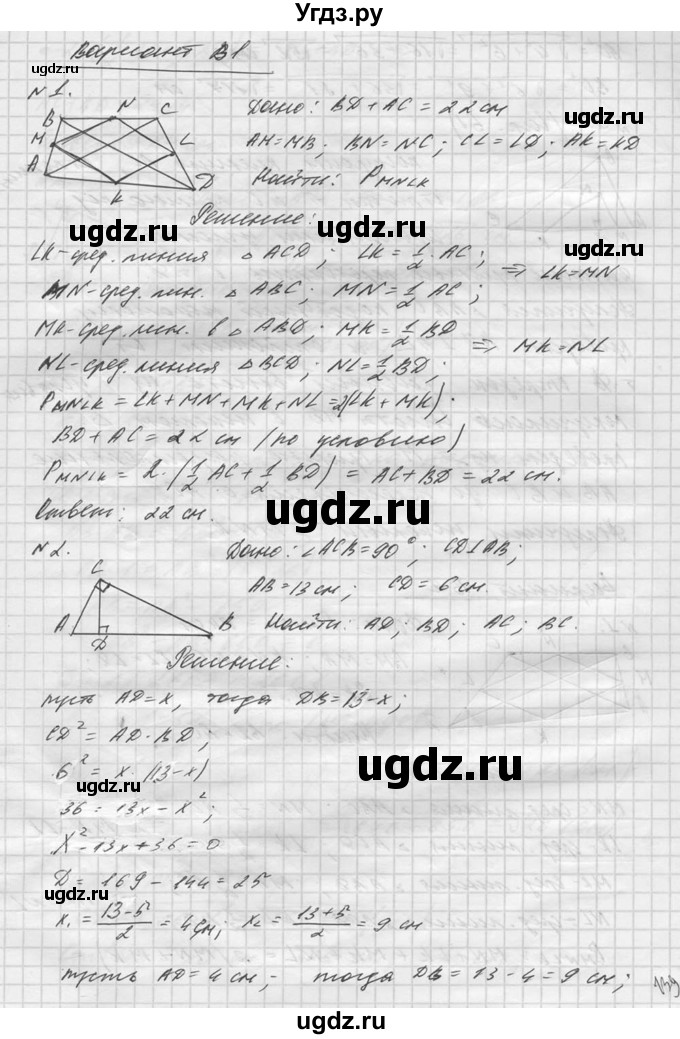 Угдз.ру
Вариант В1
ugdz.ru
№1.
B N C
M L
A K D
Дано: BD + AC = 22 см
AM = MB; BN = NC; CL = LD; AK = KD
Найти: P MNLK
Решение:
LK - сред. линия △ ACD; LK = 1/2 · AC; => LK = MN
MN - сред. лин. △ ABC; MN = 1/2 AC;
MK - сред. лин. в △ ABD; MK = 1/2 BD => MK = NL
NL - сред. линия △ BCD; NL = 1/2 BD;
P MNLK = LK + MN + MK + NL = 2(LK + MK);
BD + AC = 22 см (по условию)
P MNLK = 2 · (1/2 AC + 1/2 BD) = AC + BD = 22 см.
Ответ: 22 см.
№2.
C
A D B
Дано: ∠ACB = 90°; CD ⊥ AB;
AB = 13 см; CD = 6 см.
Найти: AD; BD; AC; BC.
Решение:
пусть AD = x, тогда DB = 13 - x;
CD² = AD · BD;
6² = x · (13 - x)
36 = 13x - x²;
x² - 13x + 36 = 0
D = 169 - 144 = 25
x₁ = (13 - 5)/2 = 4 см; x₂ = (13 + 5)/2 = 9 см
пусть AD = 4 см, - тогда DB = 13 - 4 = 9 см;
139
ugdz.ru
ugdz.ru
ugdz.ru
ugdz.ru
ugdz.ru
ugdz.ru
ugdz.ru
ugdz.ru
ugdz.ru
ugdz.ru
ugdz.ru
ugdz.ru